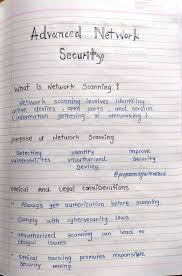 Advanced Network
Security
What is Network Scanning?
Network scanning involves identifying
active devices, open ports, and services
(information gathering of Networking)
purpose of Network Scanning
Detecting identify improve
vulnerabilities unauthorized security
Devices
@programmingoutsidethebox
Ethical And Legal considerations
- Always get authorization before scanning
- Comply with cybersecurity laws
- unauthorized scanning can lead to
Leagal issues
- Ethical hacking promotes responsible
security testing